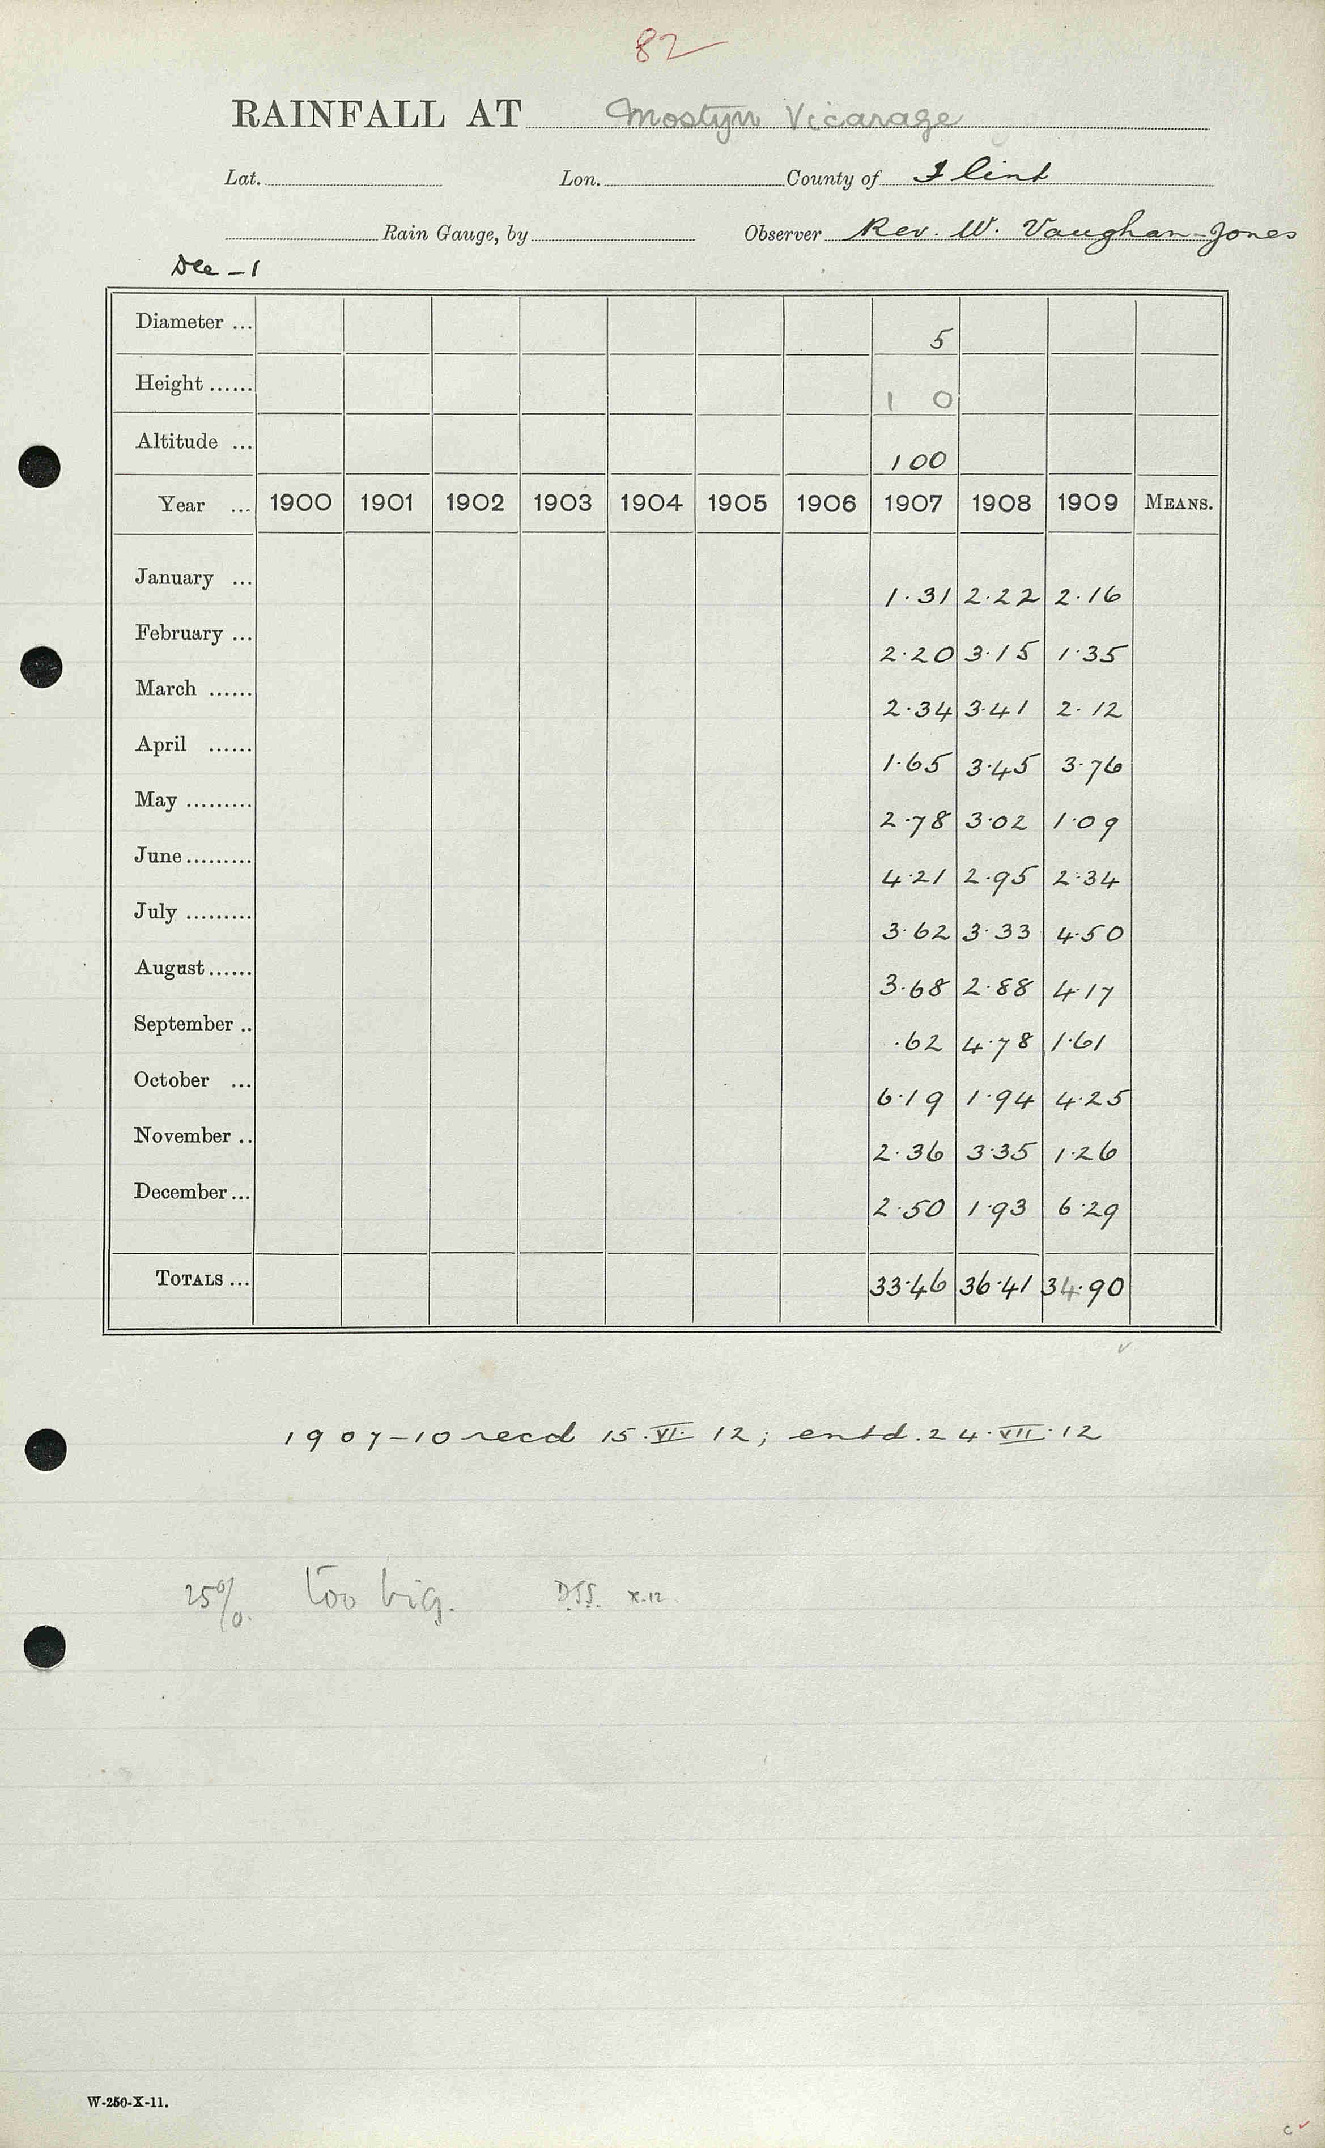 82
RAINFALL AT Mostyn Vicarage
Lat. Lon. County of Flint
Rain Gauge, by Observer Rev. W. Vaughan-Jones
Dec - 1
Diameter ... 5
Height ...... 1 0
Altitude ... 100
Year ... 1900 1901 1902 1903 1904 1905 1906 1907 1908 1909 MEANS.
January ... 1.31 2.22 2.16
February ... 2.20 3.15 1.35
March ...... 2.34 3.41 2.12
April ...... 1.65 3.45 3.76
May ......... 2.78 3.02 1.09
June ......... 4.21 2.95 2.34
July ......... 3.62 3.33 4.50
August ...... 3.68 2.88 4.17
September .. .62 4.78 1.61
October ... 6.19 1.94 4.25
November .. 2.36 3.35 1.26
December ... 2.50 1.93 6.29
TOTALS ... 33.46 36.41 34.90
1907-10 recd 15.VI.12; entd. 24.VII.12
25% too big. X.12.
W-250-X-11.